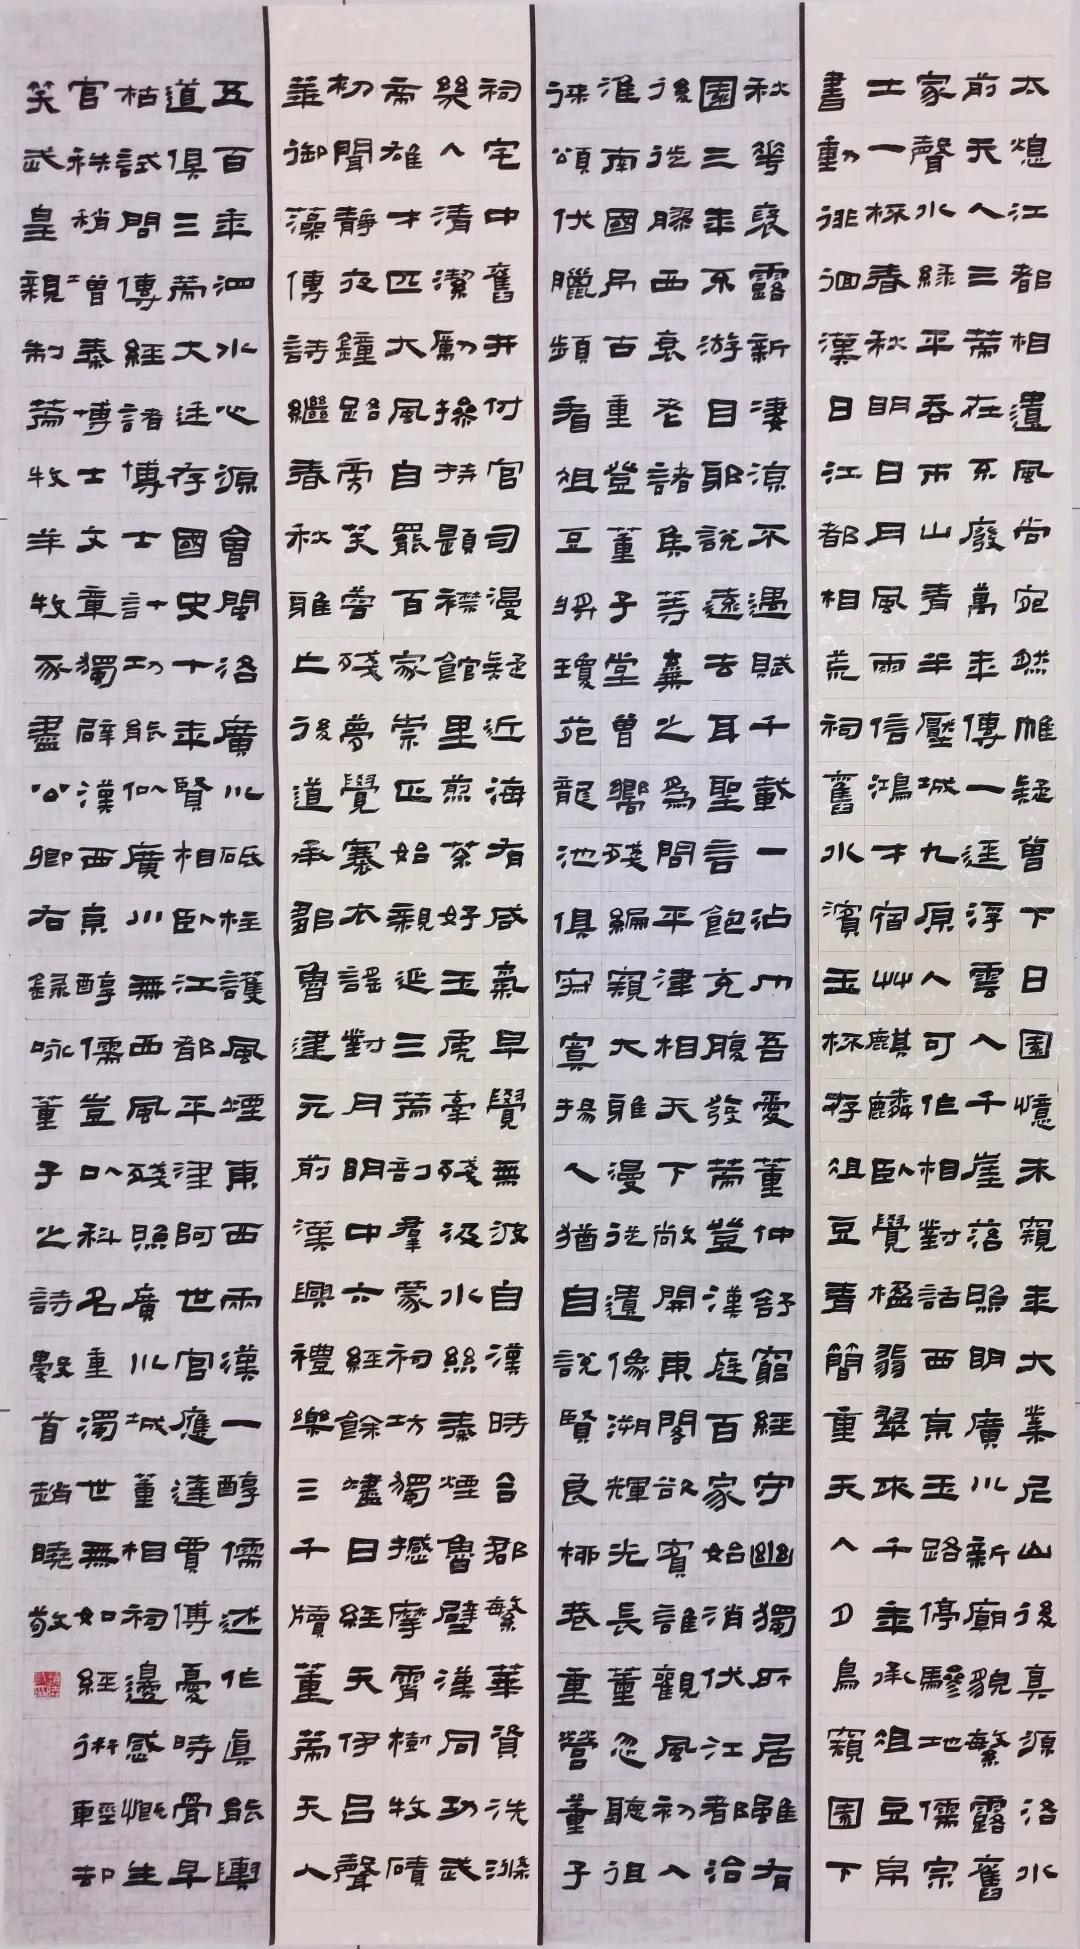 太熄江都相遺風尚宛然帷疑曾下日園憶未窺年大業尼山後真源洛水
前天人三策在不廢萬年傳一逕浮雲入千崖落照明廣川新廟貌繁露舊
家聲水綠平吞市山青半壓城九原人可作相對話西京玉路停驂地儒宗
士一杯春秋明日月風雨信鴻才宿艸麒麟臥覺楹翡翠來千年承俎豆帛
書動徘徊漢日江都相荒祠舊水濱玉杯存俎豆青簡重天人鳥窺園下
秋花裛露新淒涼不遇賦千載一沾巾吾愛董仲舒窮經守幽獨所居雖有
園三年不游目耶說遠去耳聖言飽充腹發策登漢庭百家始消伏江都治
後從膠西衰老諸焦等糞之為問平津相天下敞開東閣欲賓誰觀風初入
淮南國吊古重登董子堂曾嚮殘編窺大雅漫從遺像溯輝光長董忽聽徂
徠頌伏臘頻看俎豆將瓊苑龍池俱寂寞揚人猶自說賢良柳巷重營董子
祠宅中舊井付官司漫疑近海有咸氣早覺無波自漢時合郡繁華資洗滌
樂人清潔勵操持題襟館里煎茶好玉虎牽殘汲水絲秦煙魯壁漢同功武
帝雄才匹大風自罷百家崇匹始親延三策剖群蒙祠坊獨撼摩霄樹牧磧
初聞靜夜鐘路旁笑殘夢覺褰衣謠對月明中六經餘燼日經天伊呂聲
華御藻傳詩繼春秋雅亡後道承鄒魯建元前漢興禮樂三千牘董策天人
五百年泗水心源曾閩洛廣川砥柱護風煙東西兩漢一醇儒述作真能輿
道俱三策大廷存國史十年賢相臥江都平津阿世官應達賈傅憂時骨早
枯試問傳經諸博士計功能似廣川無西風殘照廣川城董相祠邊感慨生
官秩稍增秦博士文章獨辟漢西京醇儒豈以科名重濁世無如經術輕却
笑武皇親制策牧羊牧豕盡公卿右錄咏董子之詩數首趙曉敬